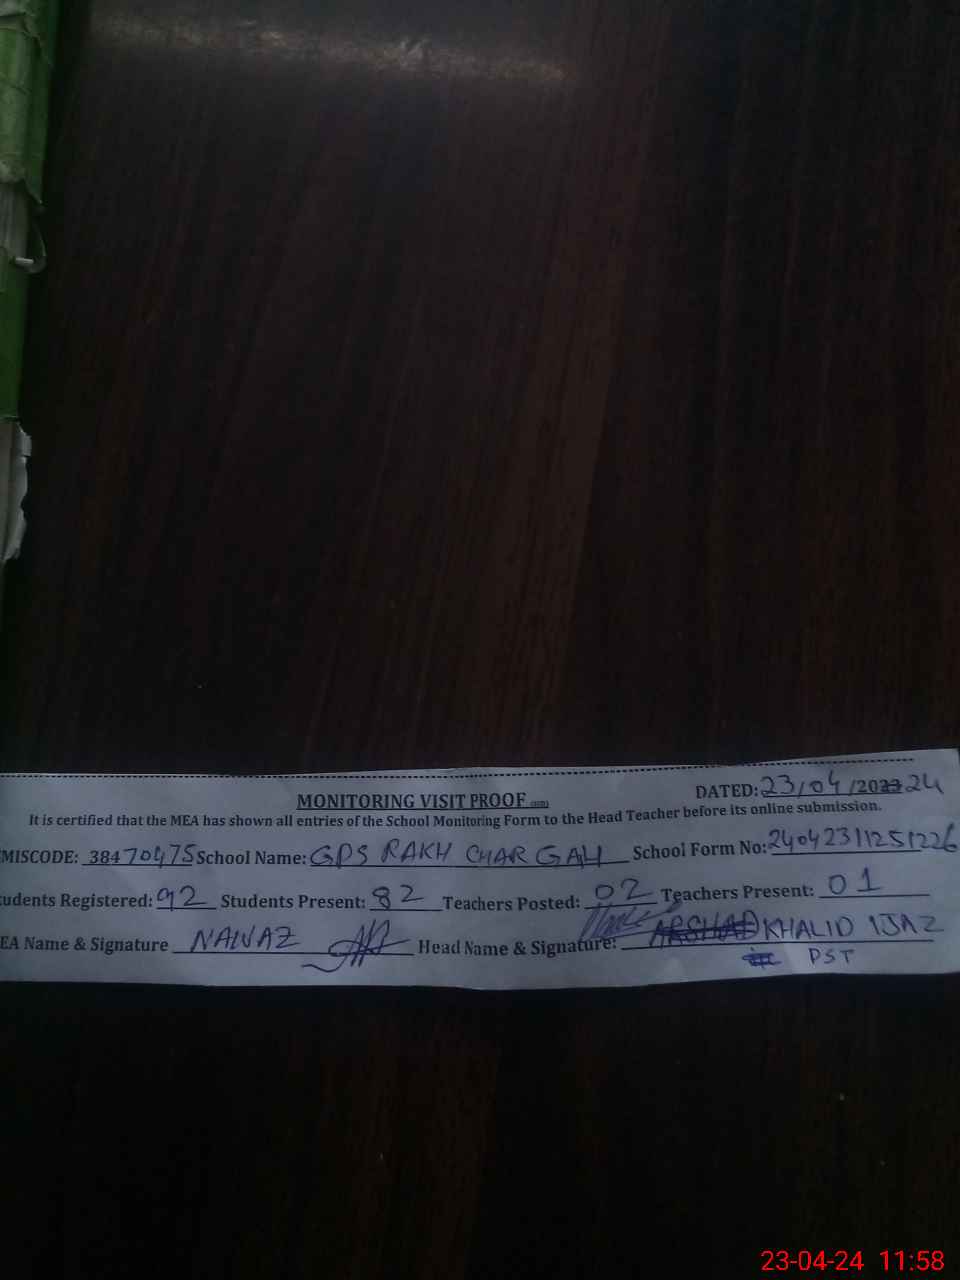 MONITORING VISIT PROOF
DATED: 23/04/2023 24
It is certified that the MEA has shown all entries of the School Monitoring Form to the Head Teacher before its online submission.
MISCODE: 38470475 School Name: GPS RAKH CHAR GAH School Form No: 24042311251226
udents Registered: 92 Students Present: 82 Teachers Posted: 02 Teachers Present: 01
EA Name & Signature NAWAZ Head Name & Signature: ARSHAD KHALID IJAZ
PST
23-04-24 11:58